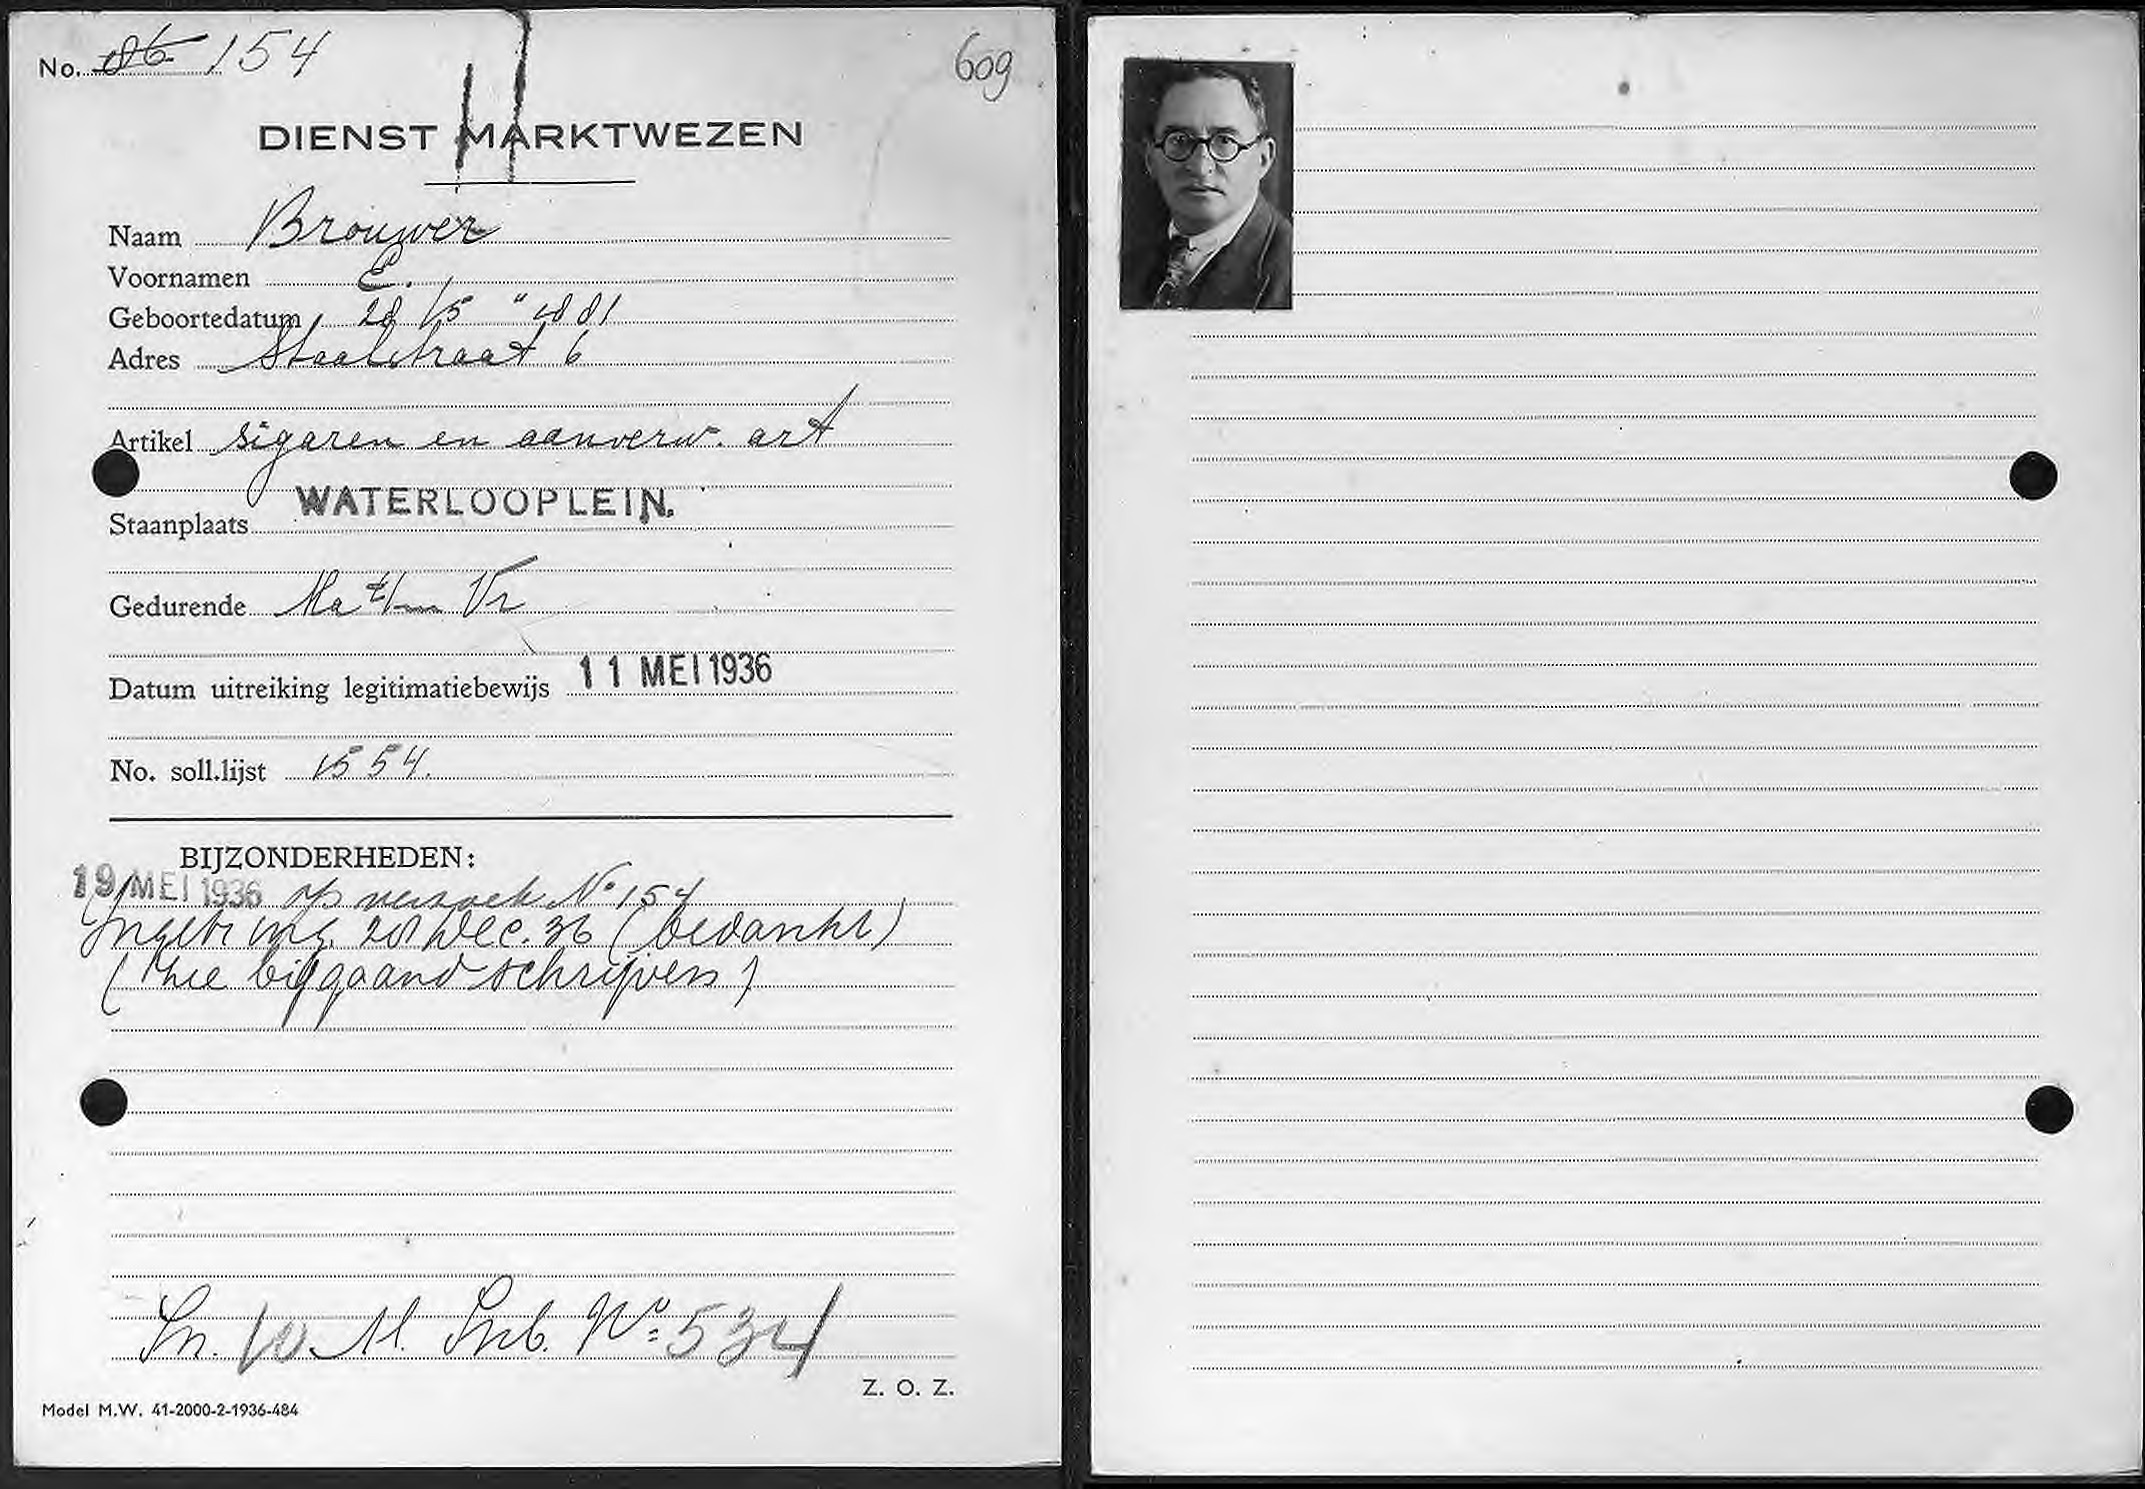 No. 86 154
609
DIENST MARKTWEZEN
Naam Brouwer
Voornamen E.
Geboortedatum 28/5 " 1881
Adres Staalstraat 6
Artikel sigaren en aanverw. art
WATERLOOPLEIN.
Staanplaats
Gedurende Ma t/m Vr
Datum uitreiking legitimatiebewijs 11 MEI 1936
No. soll.lijst 1554.
BIJZONDERHEDEN:
19 MEI 1936 op verzoek No 154
Ingetr. ing. 28 Dec. 36 (bedankt)
(zie bijgaand schrijven)
W.M. No 534
Z. O. Z.
Model M.W. 41-2000-2-1936-484